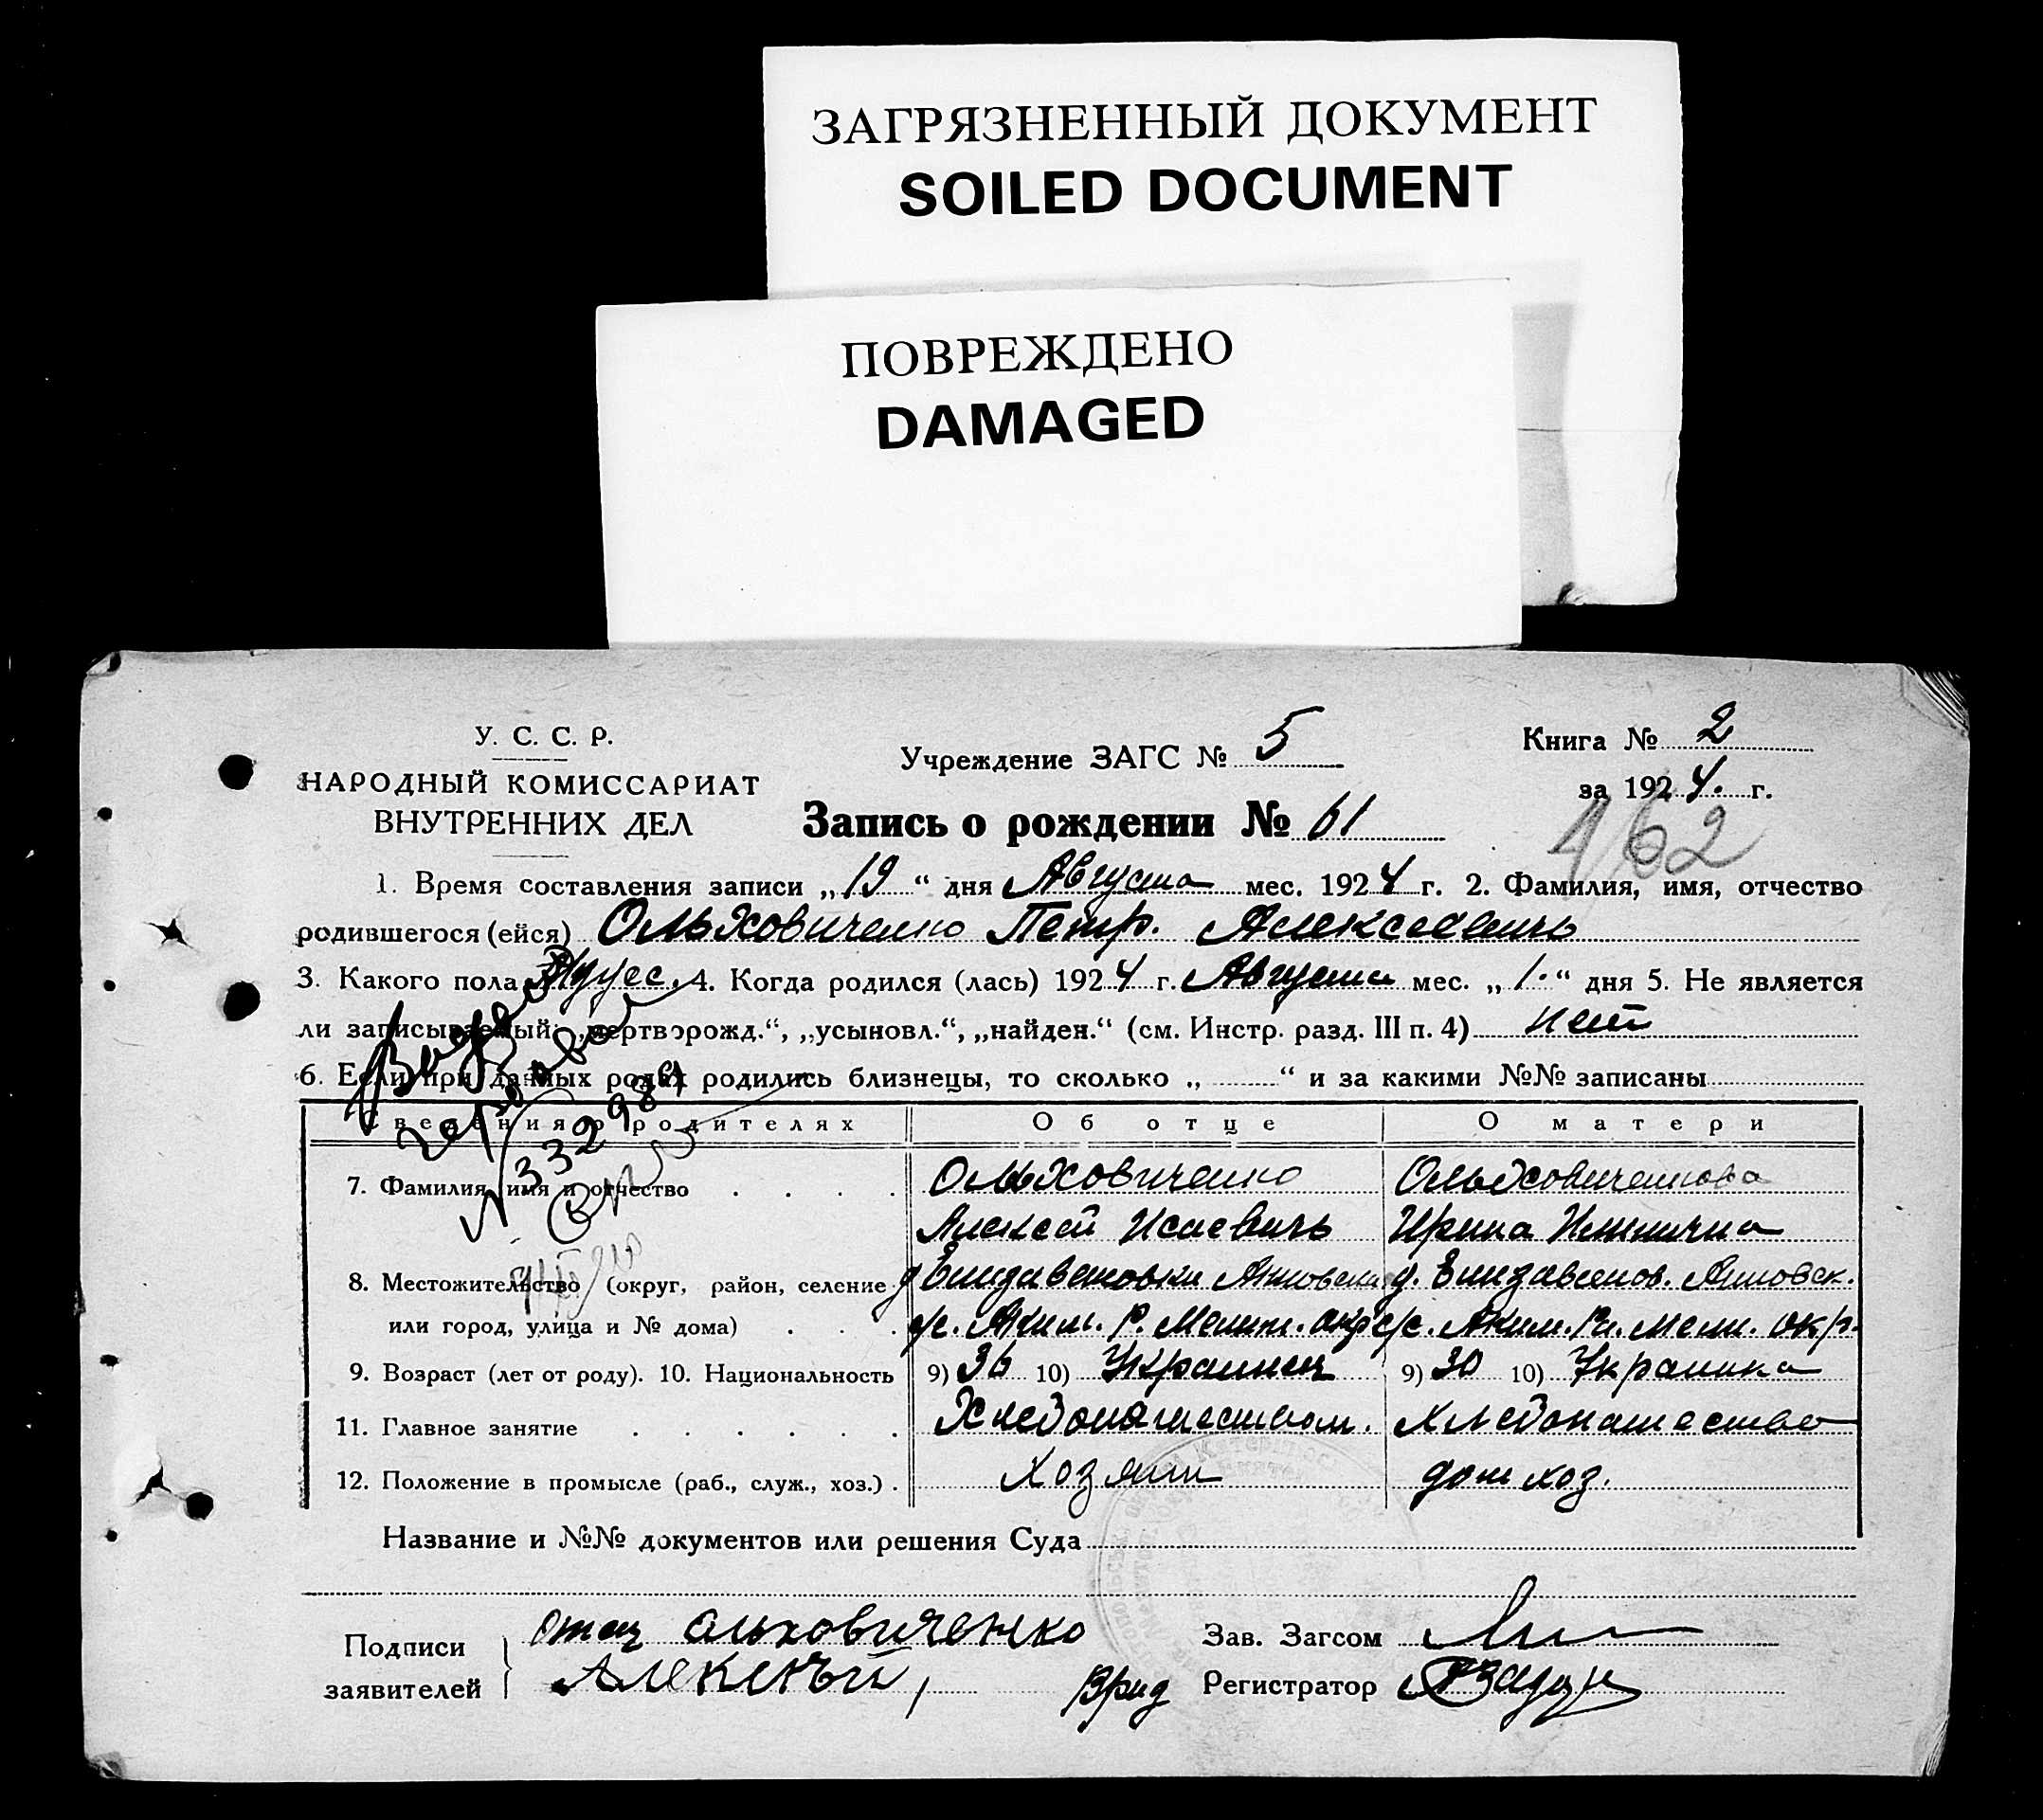 ЗАГРЯЗНЕННЫЙ ДОКУМЕНТ
SOILED DOCUMENT
ПОВРЕЖДЕНО
DAMAGED
У. С. С. Р.
НАРОДНЫЙ КОМИССАРИАТ
ВНУТРЕННИХ ДЕЛ
Учреждение ЗАГС № 5
Книга № 2
за 1924. г.
Запись о рождении № 61
162
1. Время составления записи „19“ дня Августа мес. 1924 г. 2. Фамилия, имя, отчество
родившегося (ейся) Ольховиченко Петр. Алексеевичь
3. Какого пола Муж. 4. Когда родился (лась) 1924 г. Августа мес. „1.“ дня 5. Не является
ли записываемый: „мертворожд.“, „усыновл.“, „найден.“ (см. Инстр. разд. III п. 4) нет
6. Если при данных родах родились близнецы, то сколько „ “ и за какими №№ записаны
Сведения о родителях Об отце О матери
N 332984
7. Фамилия, имя и отчество Ольховиченко Ольховиченкова
Алексей Исаевичь Ирина
8. Местожительство (округ, район, селение д Елизаветовки Анновски д. Елизаветов. Анновск.
или город, улица и № дома) с/с. Аким. Р. Мелит. окр с/с. Аким. Р. Мели. окр.
9. Возраст (лет от роду). 10. Национальность 9) 36 10) Украинец 9) 30 10) Украинка
11. Главное занятие Хледопашеством. хледопашество
12. Положение в промысле (раб., служ., хоз.) . Хозяин дом хоз.
Название и №№ документов или решения Суда
Подписи заявителей отец ольховиченко
Алексый,
Зав. Загсом
Врид Регистратор